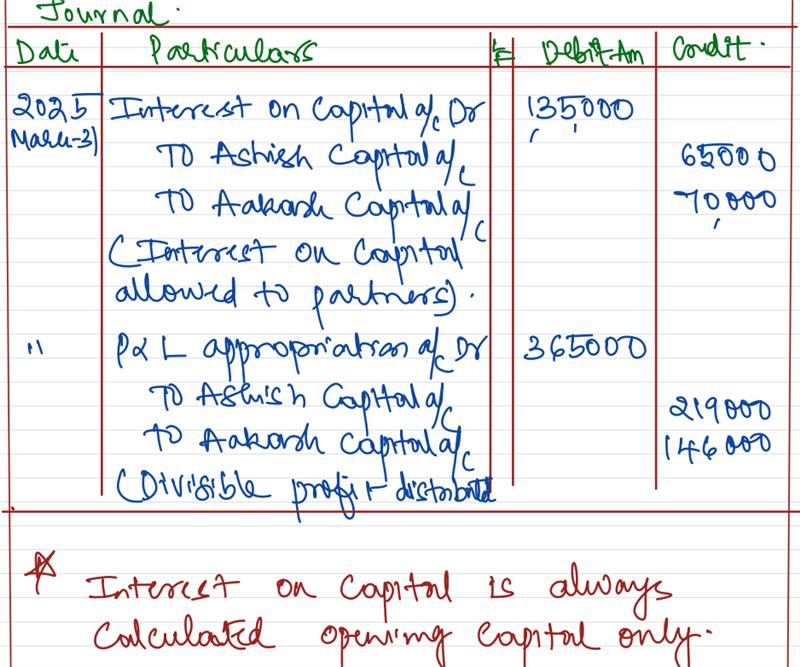 Journal.
Date Particulars LF Debit Am Credit.
2025 Interest on Capital a/c Dr 135000
March-31 To Ashish Capital a/c 65000
To Aakash Capital a/c 70,000
(Interest on Capital
allowed to partners).
" P& L appropriation a/c Dr 365000
To Ashish Capital a/c 219000
To Aakash Capital a/c 146000
(Divisible profit distributed
* Interest on Capital is always
Calculated opening Capital only.